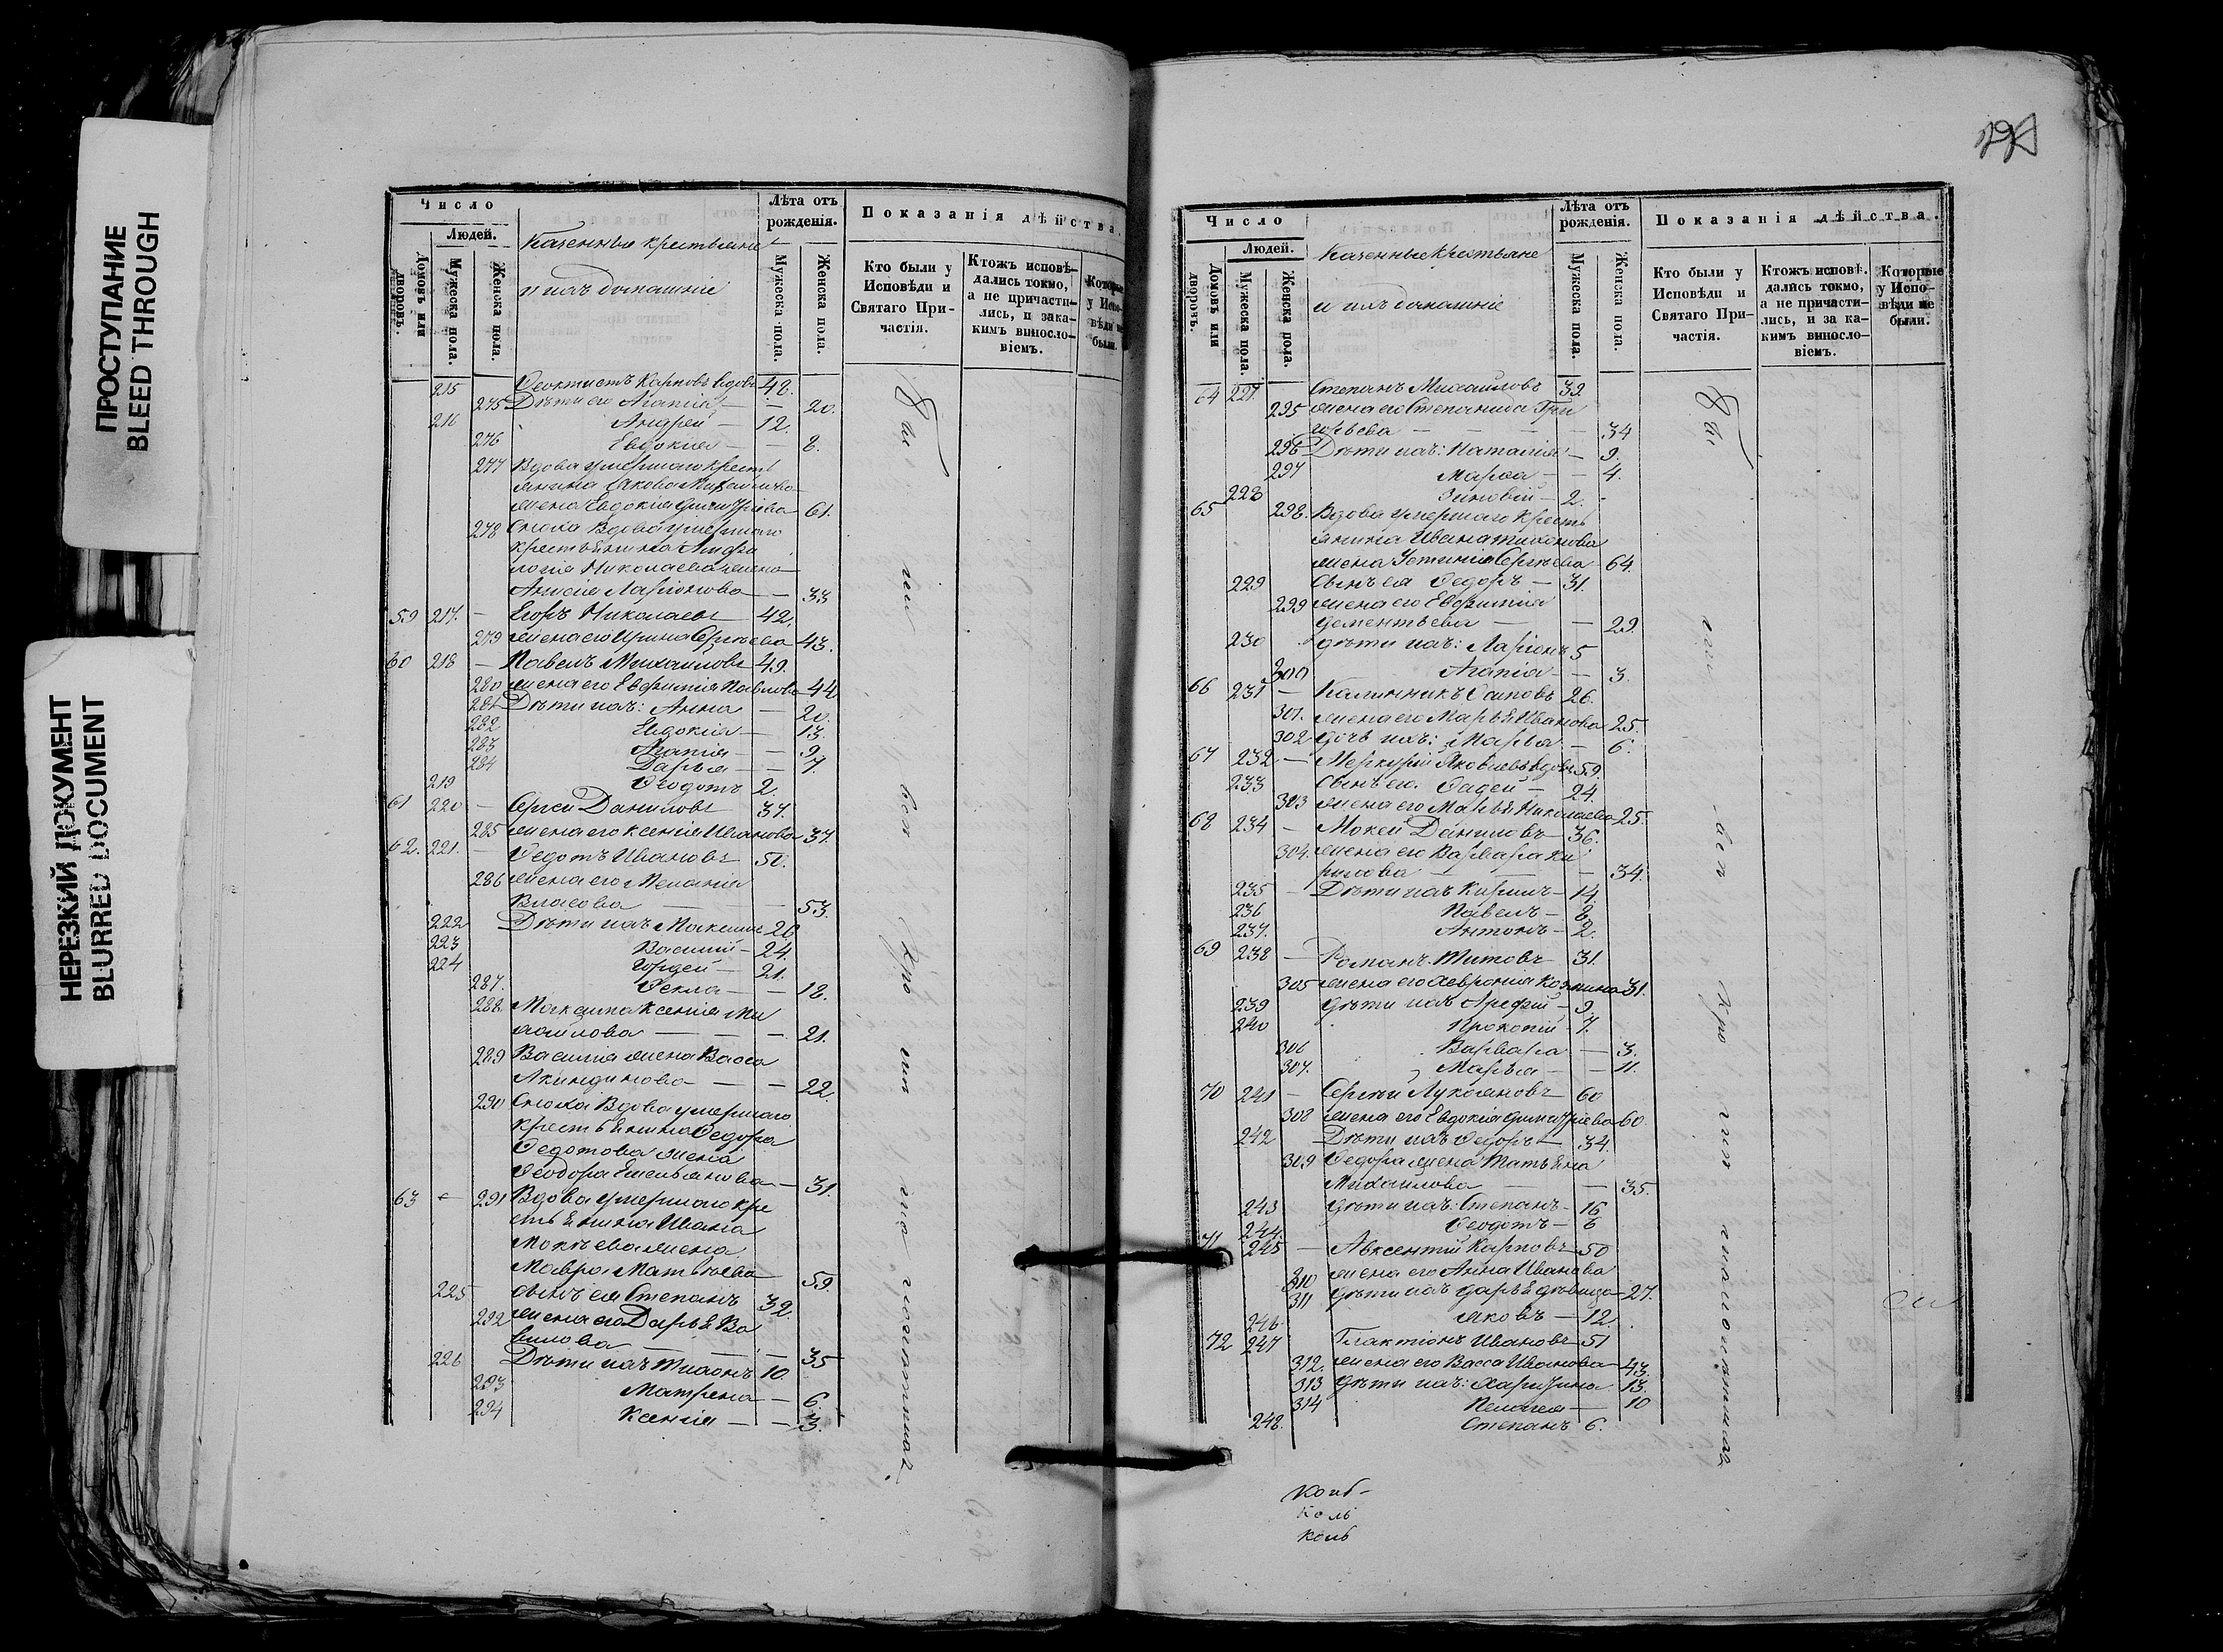 ПРОСТУПАНИЕ
BLEED THROUGH
НЕРЕЗКИЙ ДОКУМЕНТ
BLURRED DOCUMENT
Число
Людей.
Лѣта отъ рожденія.
Показанія дѣйства.
Домовъ или дворовъ.
Мужеска пола.
Женска пола.
Казенные крестьяне
и ихъ домашніе
Мужеска пола.
Женска пола.
Кто были у Исповѣди и Святаго Причастія.
Ктожъ исповѣдались токмо, а не причастились, и за какимъ винословіемъ.
Которые у Исповѣди не были.
215 Феоктистъ Карповъ вдовъ 48.
275 Дѣти его Агапія — — 20.
216 Андрей — 12.
276 Евдокия — — 8.
277 Вдова умершаго кресть
янина Іакова Михайлова
жена Евдокія Димитріева 61.
278 Сноха Вдова умершаго
крестьянина
Николаева жена
Анисія Ларіонова — 33
59 217. — Егоръ Николаевъ 42.
279 жена его Ирина Сергѣева 43.
60 218 — Павелъ Михаиловъ 49.
280 жена его Евфимія Павлова 44
281 Дѣти ихъ: Анна — 20.
282 Евдокія — 13.
283 Агапія — — 9.
284 Дарья — — 7.
219 Феодотъ 2.
61 220 — Сергей Даниловъ 37.
285 жена его Ксенія Иванова 37.
62. 221. — Федотъ Ивановъ 50.
286 жена его Меланія
Власова — — — 53.
222 Дѣти ихъ Максимъ 26
223 Василій — 24.
224 Гордей — 21.
287. Фекла — — 18.
288 Максима Ксенія Ми
хаилова — — — 21.
289 Василія жена Васса
Акиндинова — — 22.
290 Сноха Вдова умершаго
крестьянина Федора
Федотова жена
Феодора Емельянова — 31.
63 291 Вдова умершаго кре
стьянина Ивана
Мокѣева жена
Мавра Матвѣева 59.
225 сынъ ея Степанъ 32.
292 жена его Дарья Ва
вилова — — — 35
226 Дѣти ихъ Тихонъ 10
293 Матрена — 6
294 Ксенія — — 3.
Бы ли всѣ Хри сти
Число
Людей.
Лѣта отъ рожденія.
Показанія дѣйства.
Домовъ или дворовъ.
Мужеска пола.
Женска пола.
Казенные крестьяне
и ихъ домашніе
Мужеска пола.
Женска пола.
Кто были у Исповѣди и Святаго Причастія.
Ктожъ исповѣдались токмо, а не причастились, и за какимъ винословіемъ.
Которые у Исповѣди не были.
64 227. Степанъ Михаиловъ 39.
295 жена его Степанида Гри
горьева — — — — 34
296 Дѣти ихъ: Наталія — 9.
297 Марѳа — — 4.
228 Зиновій — 2. -
65 298. Вдова умершаго кресть
янина Ивана Тихонова
жена Устинія Сергѣева 64.
229 Сынъ ея Федоръ — 31.
299 жена его Евфимія
Дементьева — — 29.
230 дѣти ихъ: Ларіонъ 5
300 Агапія — — 3.
66 231 — Калинникъ Осиповъ 26.
301. жена его Марья Иванова 25.
302 дочь ихъ: Марѳа — 6.
67 232 — Меркурій Яковлевъ вдовъ 59.
233 Сынъ его Фадей — 24.
303 жена его Марья Николаева 25.
68 234 — Мокей Даниловъ 36.
304. жена его Варвара Ки
рилова — — — 34.
235 — Дѣти ихъ Кирилъ — 14.
236 Павелъ — 8.
237. Антонъ — 2.
69 238 — Романъ Титовъ 31.
305 жена его Хеврония Козмина 31.
239 дѣти ихъ Арефій — 9.
240 Прокопій — 7.
306 Варвара — 3.
307. Марья — — 11.
70 241 — Сергѣй Лукояновъ 60
308 жена его Евдокія Димитріева 60
242 Дѣти ихъ Федоръ — 34.
309 Федора жена Татьяна
Михаилова — — 35.
243 дѣти ихъ: Степанъ — 16
244. Феодотъ — 6
71 245 — Авксентій Карповъ 50
310 жена его Анна Иванова
311 дѣти ихъ Дарья дѣвица — 27.
246 Яковъ — 12.
72 247 Галактіонъ Ивановъ 51
312. жена его Васса Иванова — 43.
313 дѣти ихъ: Харитина 13.
314 Пелагея — 10
248. Степанъ 6.